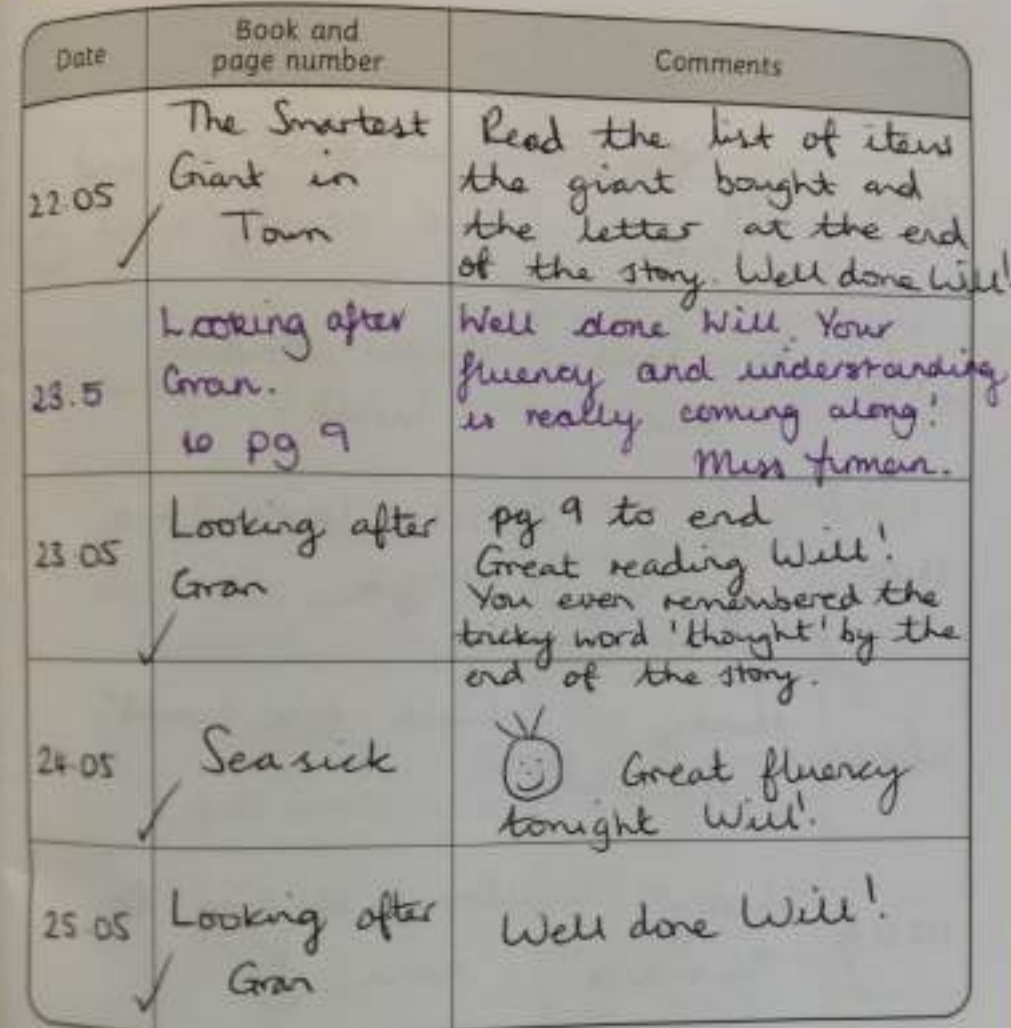 Date
Book and
page number
Comments
22.05
The Smartest
Giant in
Town
Read the list of items
the giant bought and
the letter at the end
of the story. Well done Will!
23.5
Looking after
Gran.
to pg 9
Well done Will. Your
fluency and understanding
is really coming along!
Miss
23.05
Looking after
Gran
pg 9 to end
Great reading Will!
You even remembered the
tricky word 'thought' by the
end of the story.
24.05
Seasick
Great fluency
tonight Will!
25.05
Looking after
Gran
Well done Will!